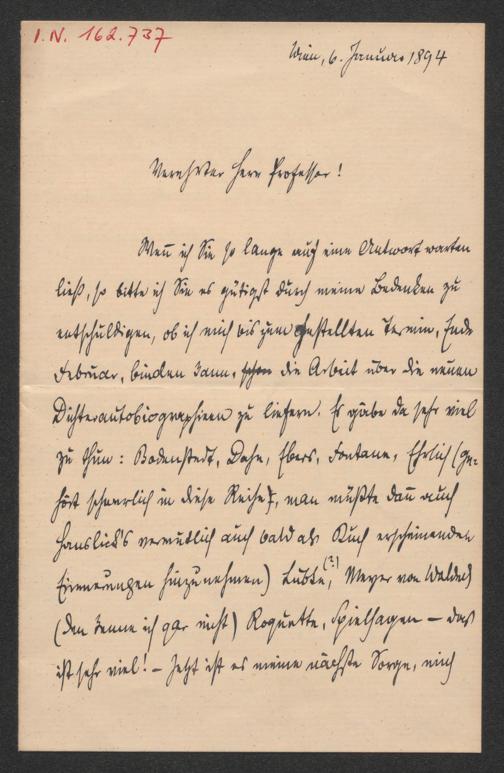 I.N. 162.737
Wien, 6. Januar 1894
Verehrter Herr Professor!
Wenn ich Sie so lange auf eine Antwort warten
ließ, so bitte ich Sie es gütigst durch meine Bedenken zu
entschuldigen, ob ich mich bis zum gestellten Termin, Ende
Februar, binden kann, schon die Arbeit über die neuen
Dichterautobiographieen zu liefern. Es gäbe da sehr viel
zu thun: Bodenstedt, Dahn, Ebers, Fontane, Ehrlich (ge-
hört schwerlich in diese Reihe), man müßte dann auch
Hanslick's vermutlich auch bald als Buch erscheinenden
Erinnerungen hinzunehmen) Lübke, (?) Meyer von Waldeck
(den kenne ich gar nicht) Roquette, Spielhagen – das
ist sehr viel! – Jetzt ist es meine nächste Sorge, mich